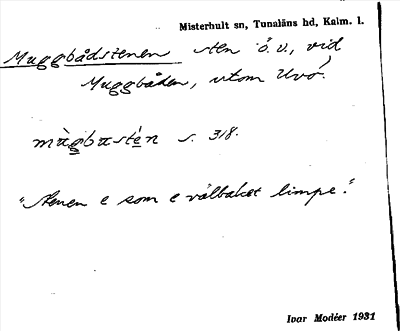 Misterhult sn, Tunaläns hd, Kalm. l.
Muggbådstenen sten ö. v., vid
Muggbåden, utom Uvö.
mùgbɑstén s. 318.
"Stenen e som e välbaket limpe."
Ivar Modéer 1931